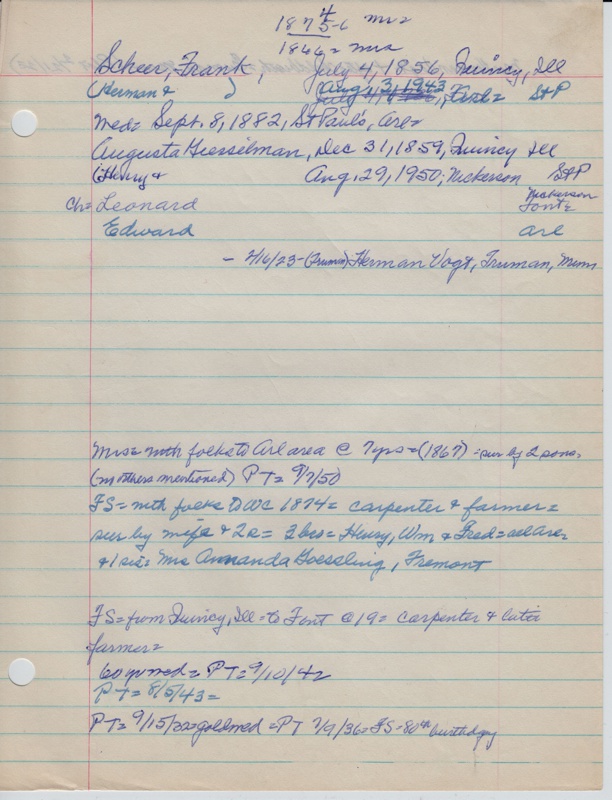 187⁴5-6 mr=
1866= mrs
Scheer, Frank, July 4, 1856, Quincy, Ill
(Herman & ) Aug 3, 1943, Arl= St P
med= Sept. 8, 1882, St Pauls, Arl=
Augusta Giesselman, Dec 31, 1859, Quincy Ill
(Henry & Aug. 29, 1950, Nickerson St P
Ch= Leonard Nickerson Font=
Edward Arl
- 2/16/23-(Truman) Herman Vogt, Truman, Minn
Mrs= mth folks to Arl area @ 7yrs=(1867) = sur by 2 sons,
(no others mentioned) PT= 9/7/50
FS= mth folks to WC 1874= carpenter & farmer=
sur by wife & 2s= 3 bros= Henry, Wm & Fred= all Arl
& 1 sis= Mrs Amanda Goessling, Fremont
FS= from Quincy, Ill= to Font @ 19= carpenter & later
farmer=
60 yr med= PT= 9/10/42
PT= 8/5/43=
PT= 9/15/32= goldmed = PT 7/9/36= FS= 80th birthday